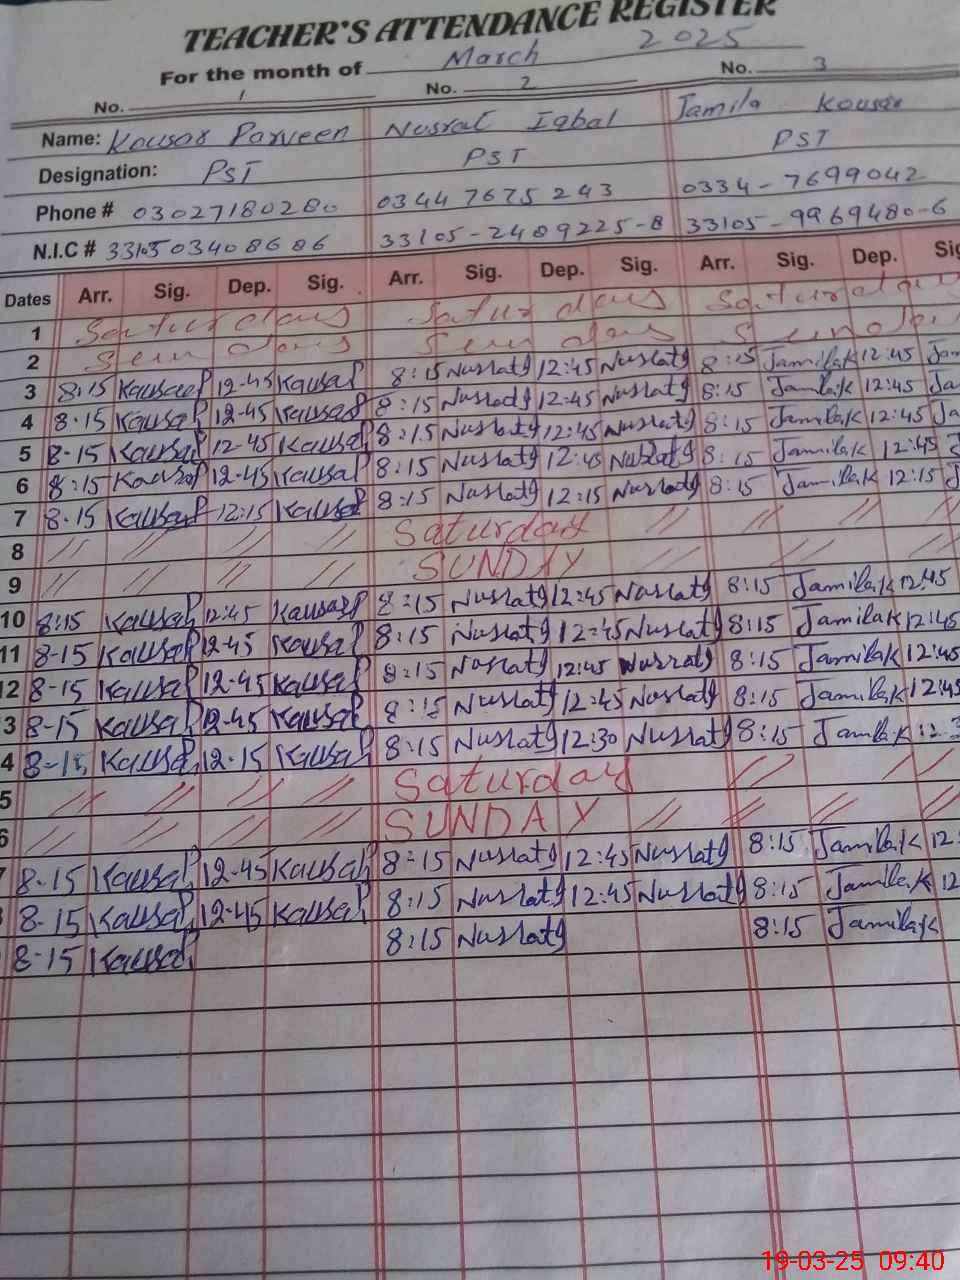 TEACHER'S ATTENDANCE REGISTER
For the month of March 2025
No. 1 No. 2 No. 3
Name: Kousar Parveen Nusrat Iqbal Jamila Kousar
Designation: PST PST PST
Phone # 03027180280 0344 7675 243 0334-7699042
N.I.C # 33105 03408686 33105-2489225-8 33105-9969480-6
Dates Arr. Sig. Dep. Sig. Arr. Sig. Dep. Sig. Arr. Sig. Dep. Sig
1 Saturday Saturday
2 Sunday Sunday
3 8:15 Kausar 12-45 Kausar 8:15 Nusrat 12:45 Nusrat 8:15 Jamila.k 12:45 Jam
4 8-15 Kausar 12-45 Kausar 8:15 Nusrat 12:45 Nusrat 8:15 Jamila.k 12:45 Ja
5 8-15 Kausar 12-45 Kausar 8:15 Nusrat 12:45 Nusrat 8:15 Jamila.k 12:45 Ja
6 8:15 Kausar 12-45 Kausar 8:15 Nusrat 12:45 Nusrat 8:15 Jamila.k 12:45
7 8-15 Kausar 12:15 Kausar 8:15 Nusrat 12:15 Nusrat 8:15 Jamila.k 12:15 J
8 // // // // Saturday // // // //
9 // // // // SUNDAY // // //
10 8:15 Kausar 12:45 Kausar 8:15 Nusrat 12:45 Nusrat 8:15 Jamila.k 12:45
11 8-15 Kausar 12-45 Kausar 8:15 Nusrat 12:45 Nusrat 8:15 Jamila.k 12:45
12 8-15 Kausar 12-45 Kausar 8:15 Nusrat 12:45 Nusrat 8:15 Jamila.k 12:45
3 8-15 Kausar 12-45 Kausar 8:15 Nusrat 12:45 Nusrat 8:15 Jamila.k 12:45
4 8-15 Kausar 12-15 Kausar 8:15 Nusrat 12:30 Nusrat 8:15 Jamila.k 12:3
5 // // // // Saturday // //
6 // // // // SUNDAY // // // //
8-15 Kausar 12-45 Kausar 8:15 Nusrat 12:45 Nusrat 8:15 Jamila.k 12:
8-15 Kausar 12-45 Kausar 8:15 Nusrat 12:45 Nusrat 8:15 Jamila.k 12
8-15 Kausar 8:15 Nusrat 8:15 Jamila.k
19-03-25 09:40